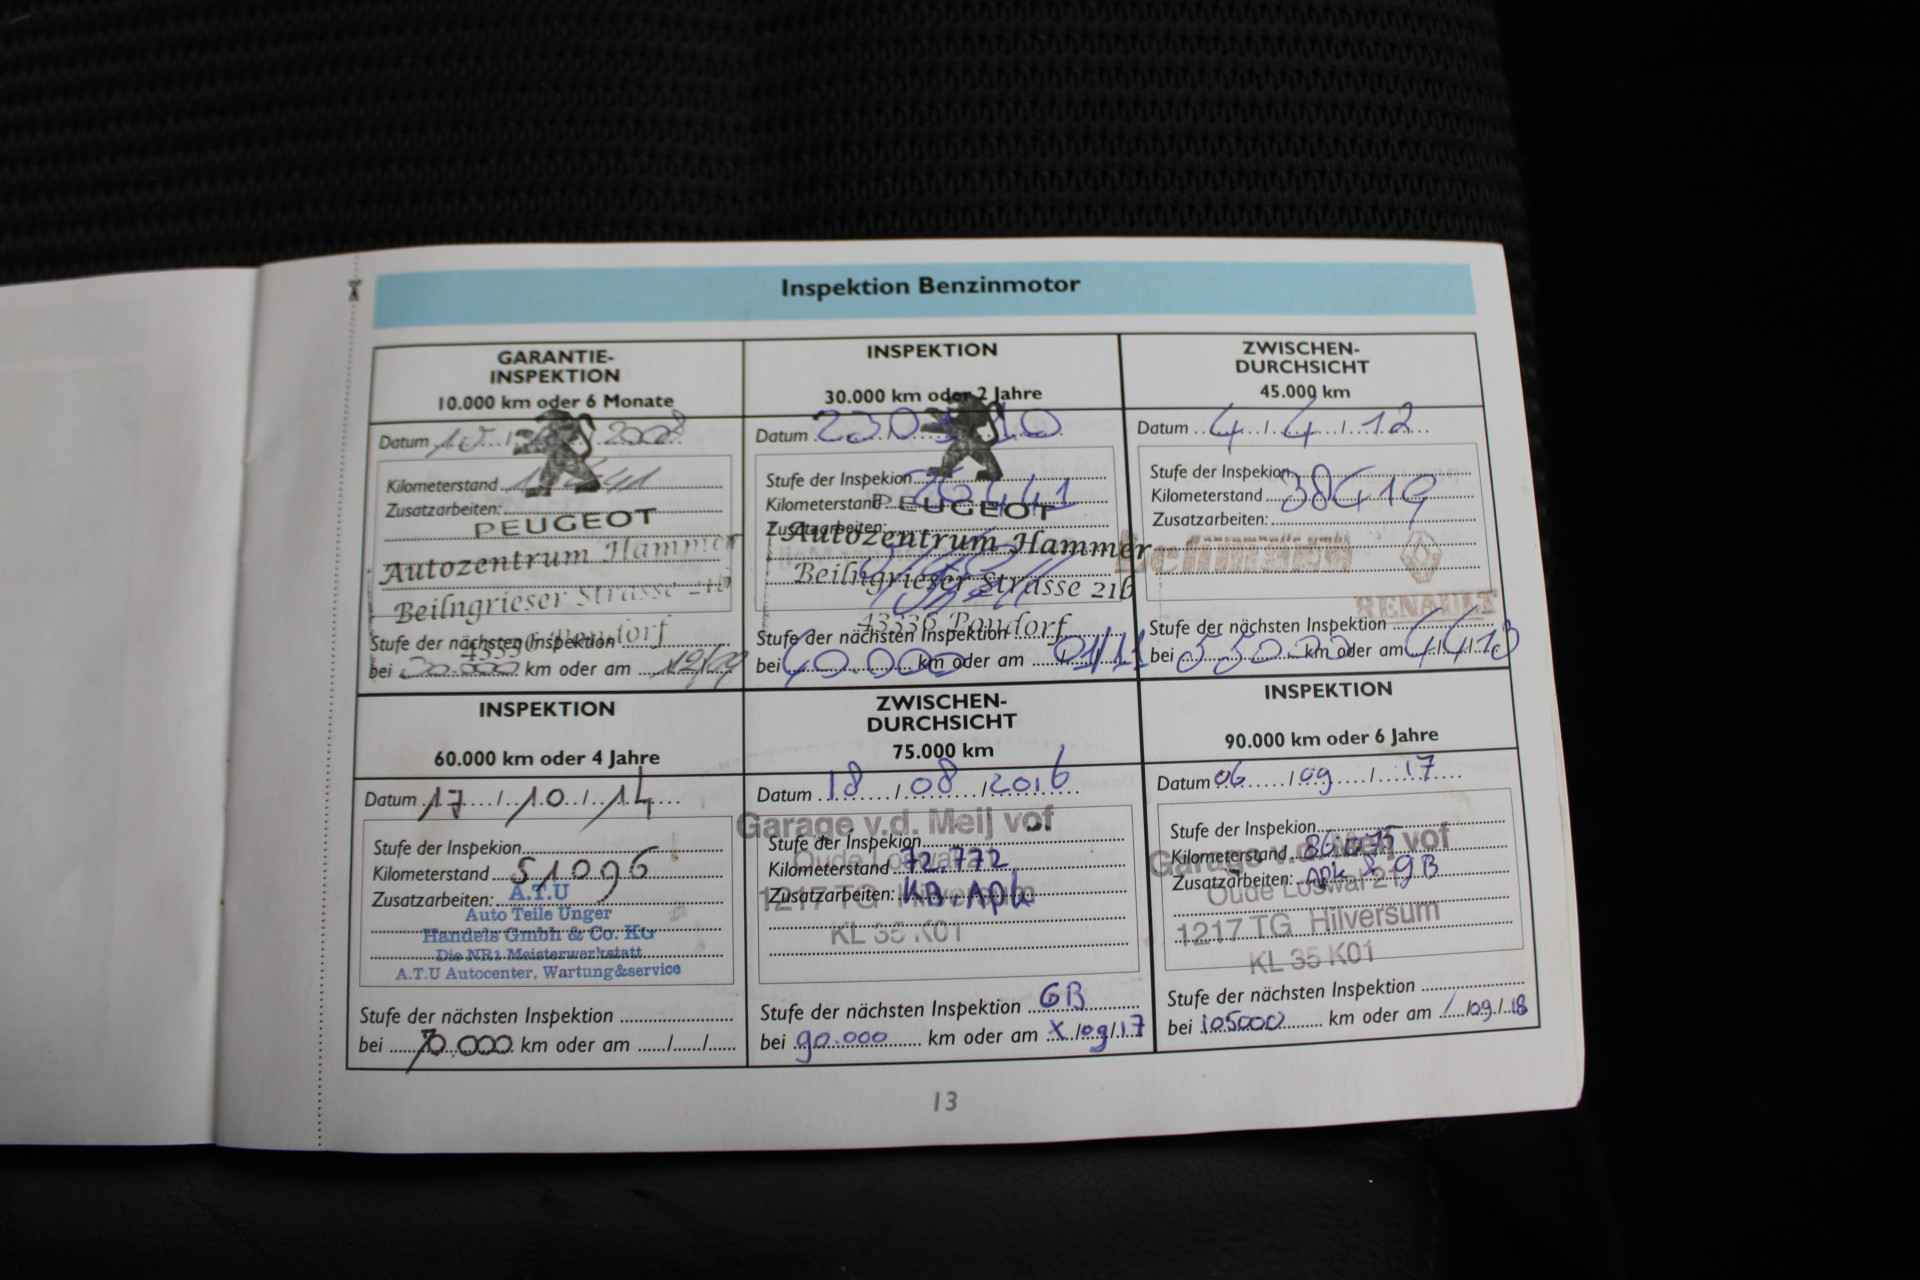 Inspektion Benzinmotor
GARANTIE-
INSPEKTION
10.000 km oder 6 Monate
Datum 2008
Kilometerstand
Zusatzarbeiten:
PEUGEOT
Autozentrum Hammer
Beilngrieser Strasse 21b
Stufe der nächsten Inspektion
bei 30.000 km oder am 12/09
INSPEKTION
30.000 km oder 2 Jahre
Datum 10
Stufe der Inspekion
Kilometerstand
PEUGEOT
Zusatzarbeiten:
Autozentrum Hammer
Beilngrieser Strasse 21b
Stufe der nächsten Inspektion
bei 40.000 km oder am 01/11
ZWISCHEN-
DURCHSICHT
45.000 km
Datum 4 / 4 / 12
Stufe der Inspekion
Kilometerstand 38419
Zusatzarbeiten:
RENAULT
Stufe der nächsten Inspektion
bei km oder am 4/4/13
INSPEKTION
60.000 km oder 4 Jahre
Datum 17 / 10 / 14
Stufe der Inspekion
Kilometerstand 51096
Zusatzarbeiten:
A.T.U
Auto Teile Unger
Handels Gmbh & Co. KG
Die NR1 Meisterwerkstatt
A.T.U Autocenter, Wartung&service
Stufe der nächsten Inspektion
bei 70.000 km oder am / /
ZWISCHEN-
DURCHSICHT
75.000 km
Datum 18 / 08 / 2016
Garage v.d. Meij vof
Stufe der Inspekion
Oude Loswal 21
Kilometerstand 72.772
Zusatzarbeiten: KB. Apk
1217 TG Hilversum
KL 35 K01
Stufe der nächsten Inspektion GB
bei 90.000 km oder am X/09/17
INSPEKTION
90.000 km oder 6 Jahre
Datum 06 / 09 / 17
Stufe der Inspekion
Kilometerstand
Garage v.d. Meij vof
Zusatzarbeiten: Apk & GB
Oude Loswal 21
1217 TG Hilversum
KL 35 K01
Stufe der nächsten Inspektion
bei 105000 km oder am /09/18
13